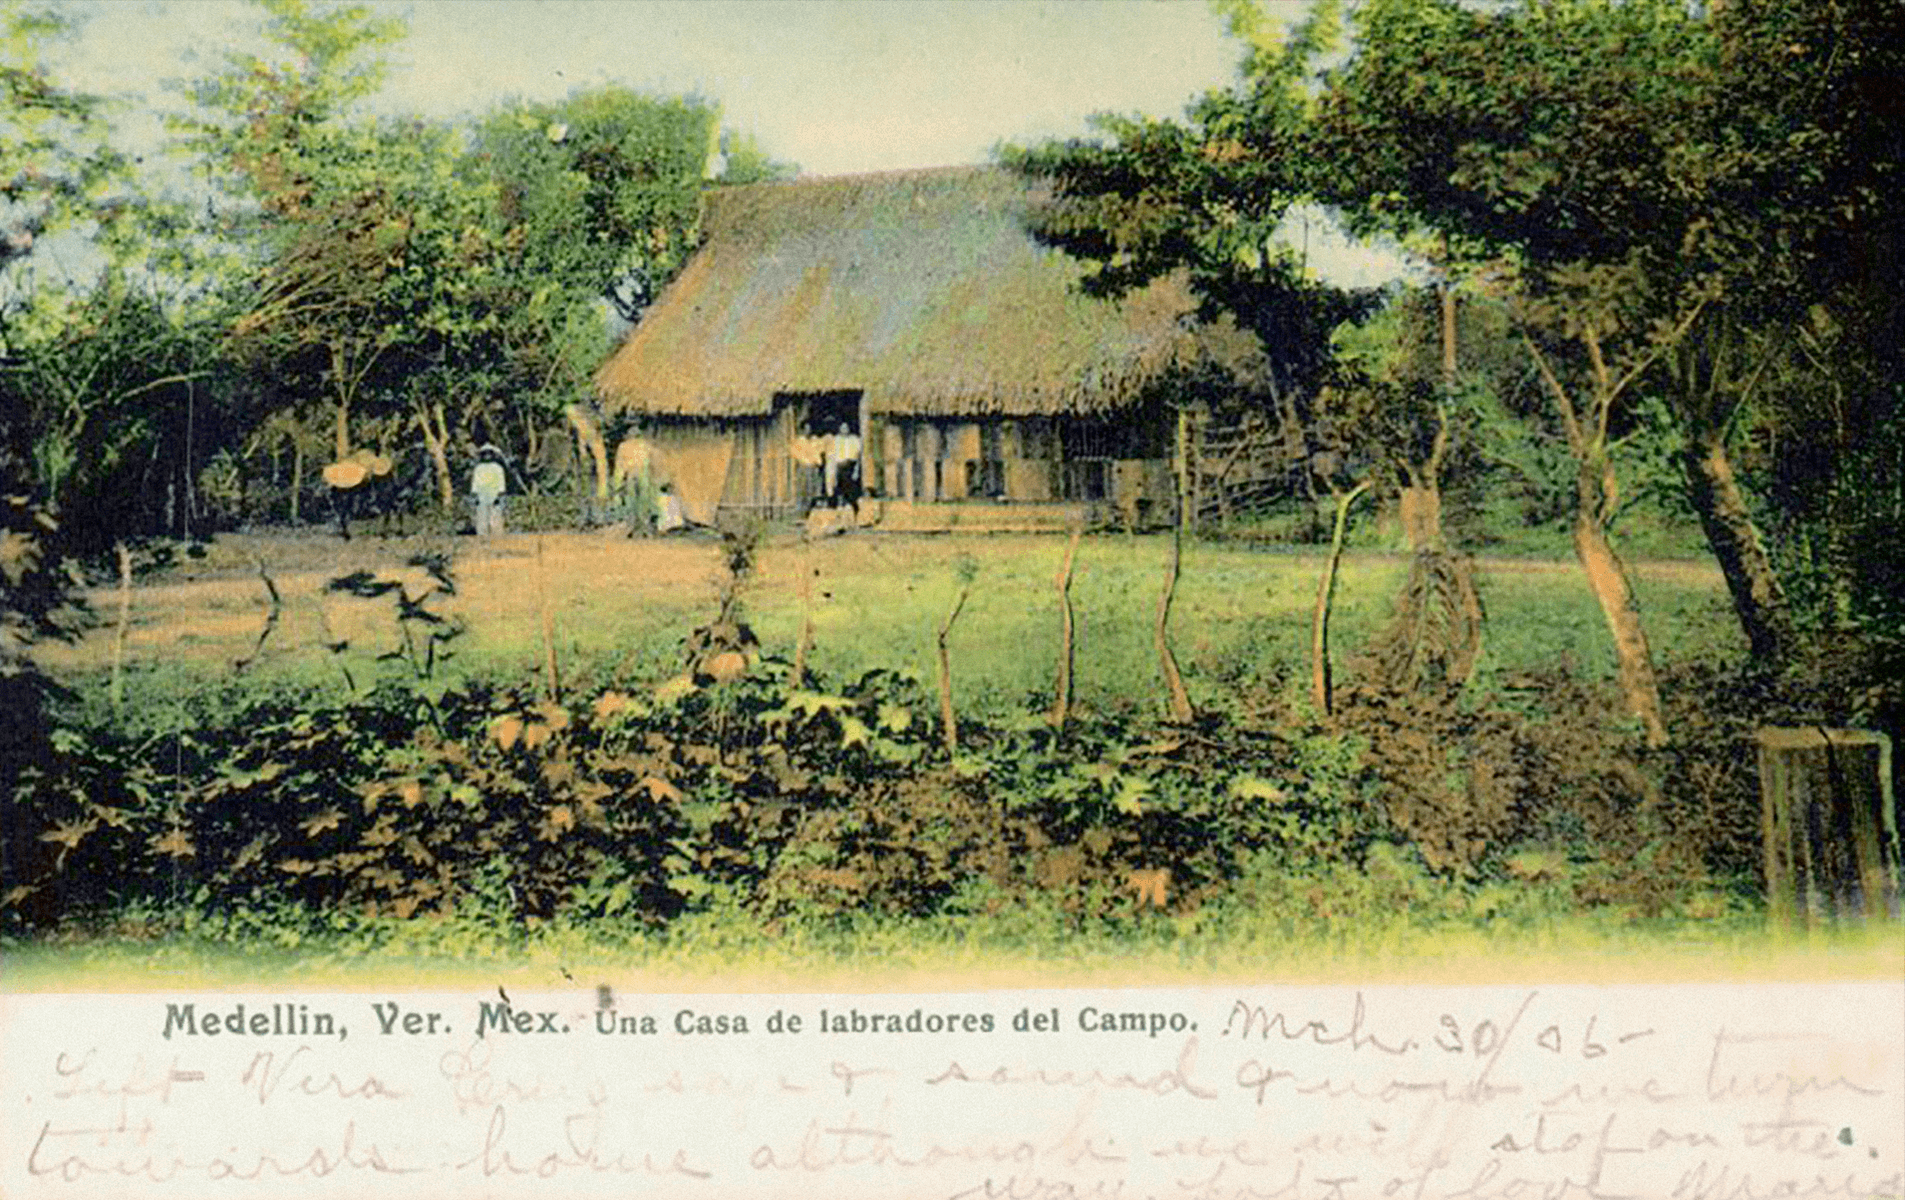 Medellin, Ver. Mex. Una Casa de labradores del Campo. Mch. 30/06-
Left Vera Cruz safe & sound & now we turn
towards home although we will stop on the
way. Lots of love Maria